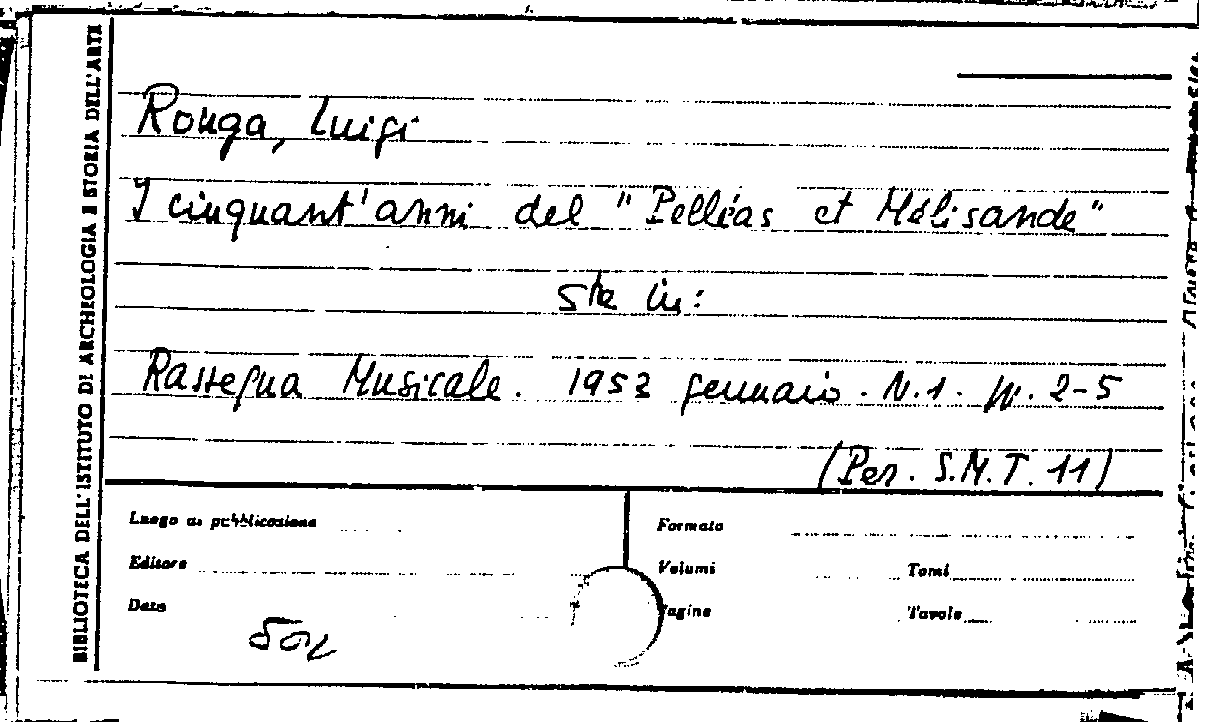 BIBLIOTECA DELL'ISTITUTO DI ARCHEOLOGIA E STORIA DELL'ARTE
Ronga, Luigi
I cinquant'anni del "Pelléas et Mélisande"
sta in:
Rassegna Musicale. 1953 gennaio. N.1. pp. 2-5
(Per. S.M.T. 11)
Luogo di pubblicazione
Editore
Data
Formato
Volumi Tomi
Pagine Tavole